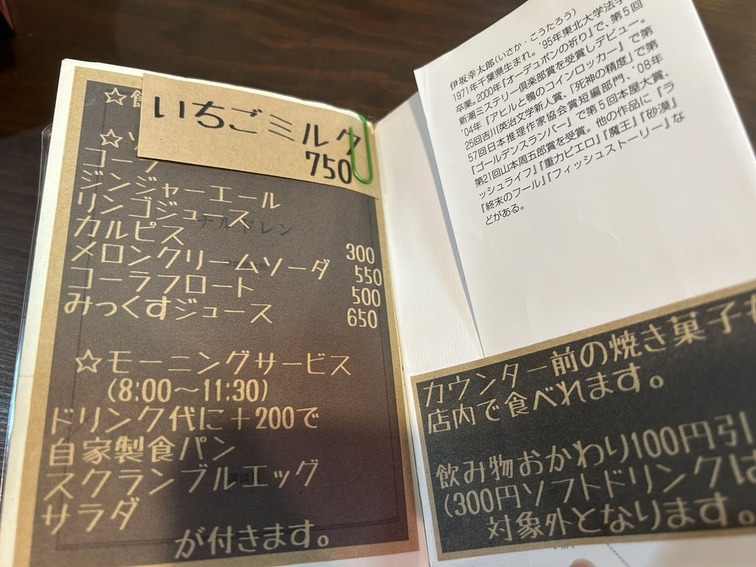 いちごミルク
750
ジンジャーエール
リンゴジュース
カルピス 300
メロンクリームソーダ 550
コーラフロート 500
みっくすジュース 650
☆モーニングサービス
(8:00～11:30)
ドリンク代に+200で
自家製食パン
スクランブルエッグ
サラダ
が付きます。
伊坂幸太郎(いさか・こうたろう)
1971年千葉県生まれ。'95年東北大学法学
卒業。2000年『オーデュボンの祈り』で、第5回
新潮ミステリー倶楽部賞を受賞しデビュー。
'04年『アヒルと鴨のコインロッカー』で第
25回吉川英治文学新人賞、『死神の精度』で第
57回日本推理作家協会賞短編部門、'08年
『ゴールデンスランバー』で第5回本屋大賞、
第21回山本周五郎賞を受賞。他の作品に『ラ
ッシュライフ』『重力ピエロ』『魔王』『砂漠』
『終末のフール』『フィッシュストーリー』な
どがある。
カウンター前の焼き菓子
店内で食べれます。
飲み物おかわり100円引
(300円ソフトドリンクは
対象外となります。